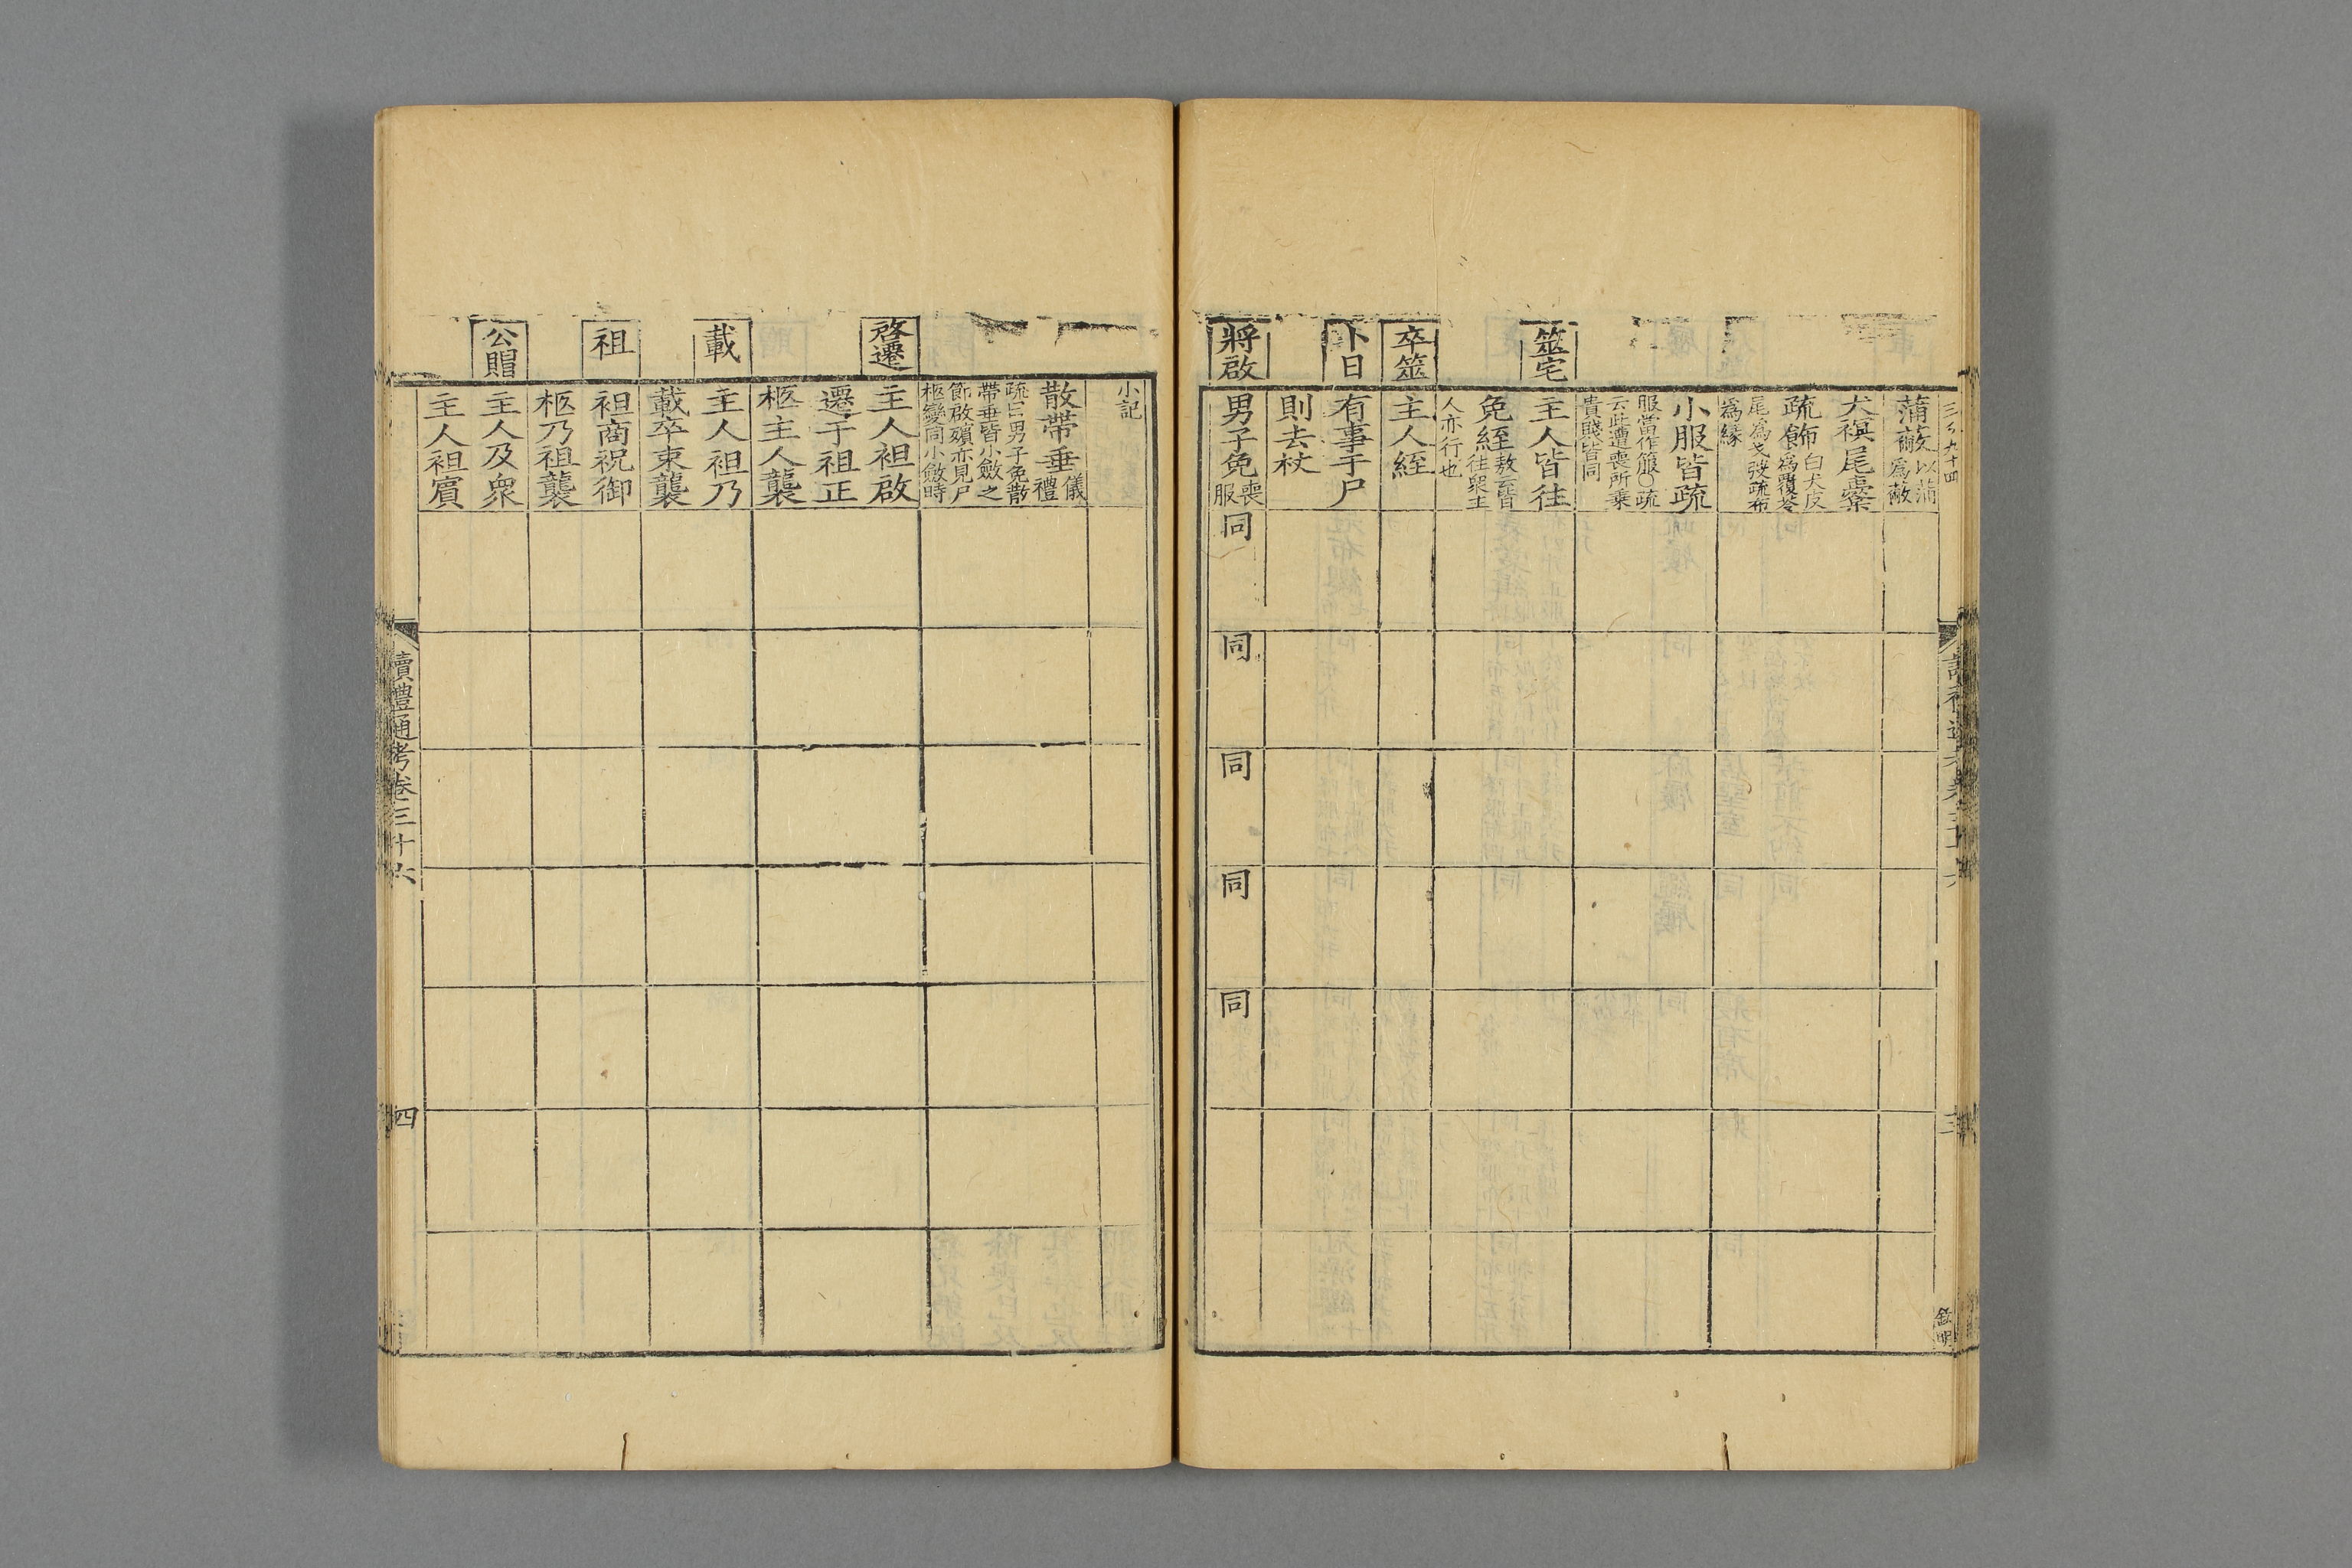 三百九十四
蒲蔽以蒲蘭爲蔽
犬𧜀尾櫜
疏飾白犬皮爲覆笭
尾爲戈弢疏布
爲緣
小服皆疏
服當作箙○疏
云此遭喪所乘
貴賤皆同
筮宅
主人皆往
免絰敖云皆往眾主
人亦行也
卒筮
主人絰
卜日
有事于尸
則去杖
將啟
男子免喪服
同
同
同
同
同
三
小記
散帶垂儀禮
疏曰男子免散
帶垂皆小斂之
節啟殯亦見尸
柩變同小斂時
啓遷
主人袒啟
遷于祖正
柩主人襲
載
主人袒乃
載卒束襲
祖
袒商祝御
柩乃祖襲
公賵
主人及眾
主人袒賓
讀禮通考卷三十六
四